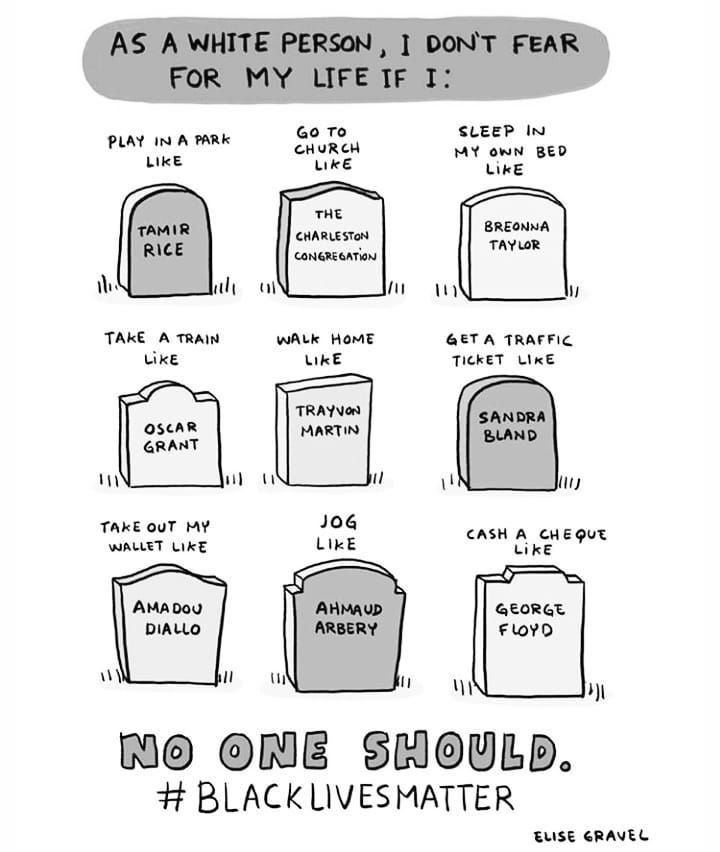 AS A WHITE PERSON, I DON'T FEAR
FOR MY LIFE IF I:
PLAY IN A PARK
LIKE
TAMIR
RICE
GO TO
CHURCH
LIKE
THE
CHARLESTON
CONGREGATION
SLEEP IN
MY OWN BED
LIKE
BREONNA
TAYLOR
TAKE A TRAIN
LIKE
OSCAR
GRANT
WALK HOME
LIKE
TRAYVON
MARTIN
GET A TRAFFIC
TICKET LIKE
SANDRA
BLAND
TAKE OUT MY
WALLET LIKE
AMADOU
DIALLO
JOG
LIKE
AHMAUD
ARBERY
CASH A CHEQUE
LIKE
GEORGE
FLOYD
NO ONE SHOULD.
#BLACKLIVESMATTER
ELISE GRAVEL